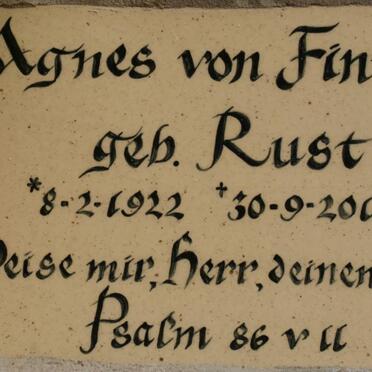 Agnes von Fin
geb. Rust
*8-2-1922 †30-9-200
Weise mir, Herr, deinen
Psalm 86 v 11